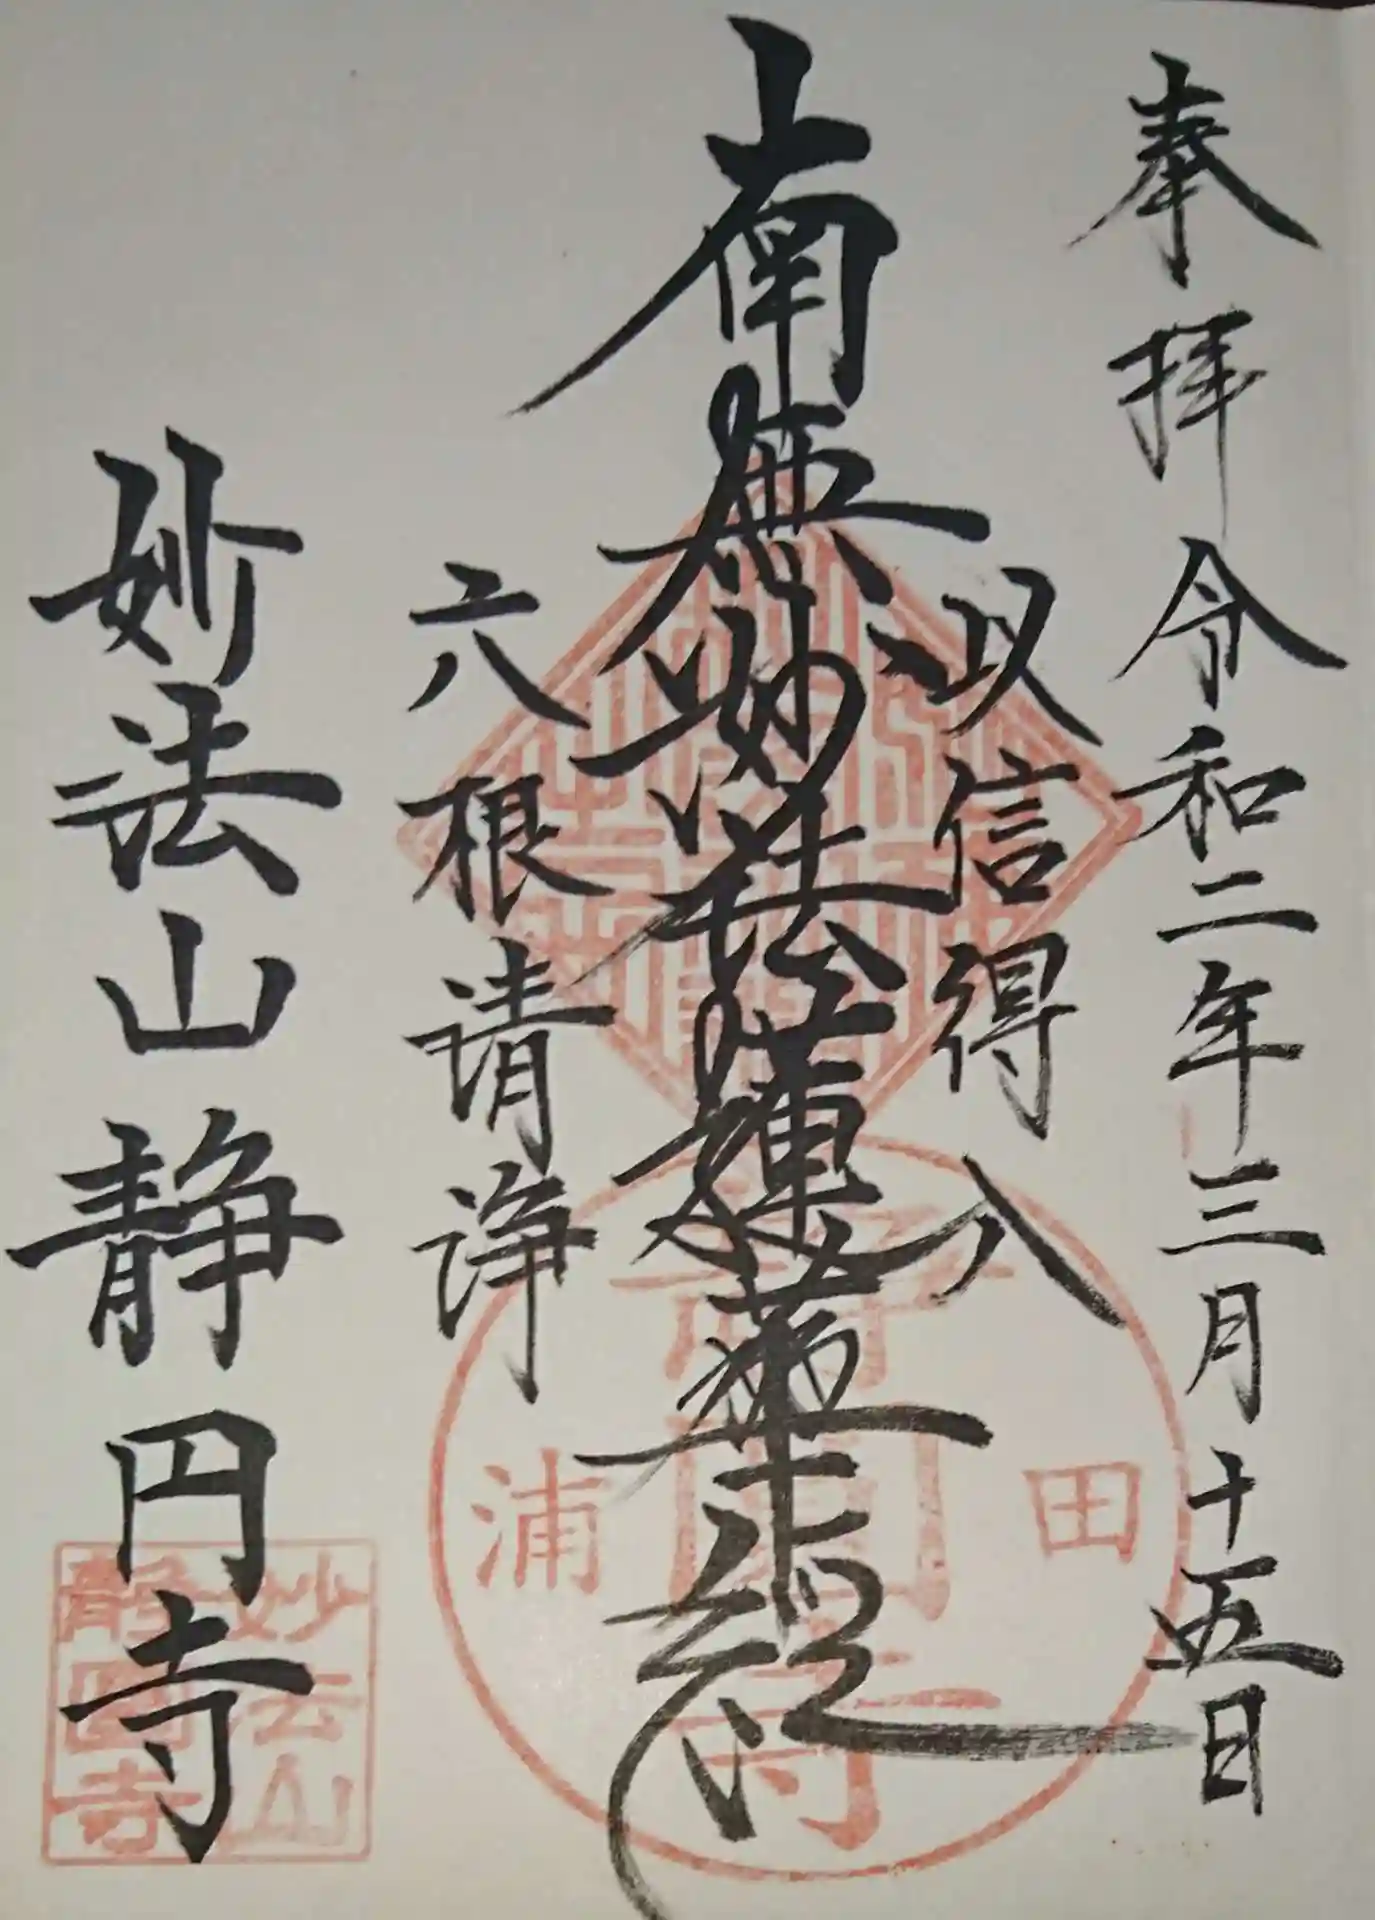 奉拝 令和二年三月十五日
以信得入
南無妙法蓮華経
六根清浄
妙法山静円寺
田
浦
静圓寺
妙法山
静圓寺